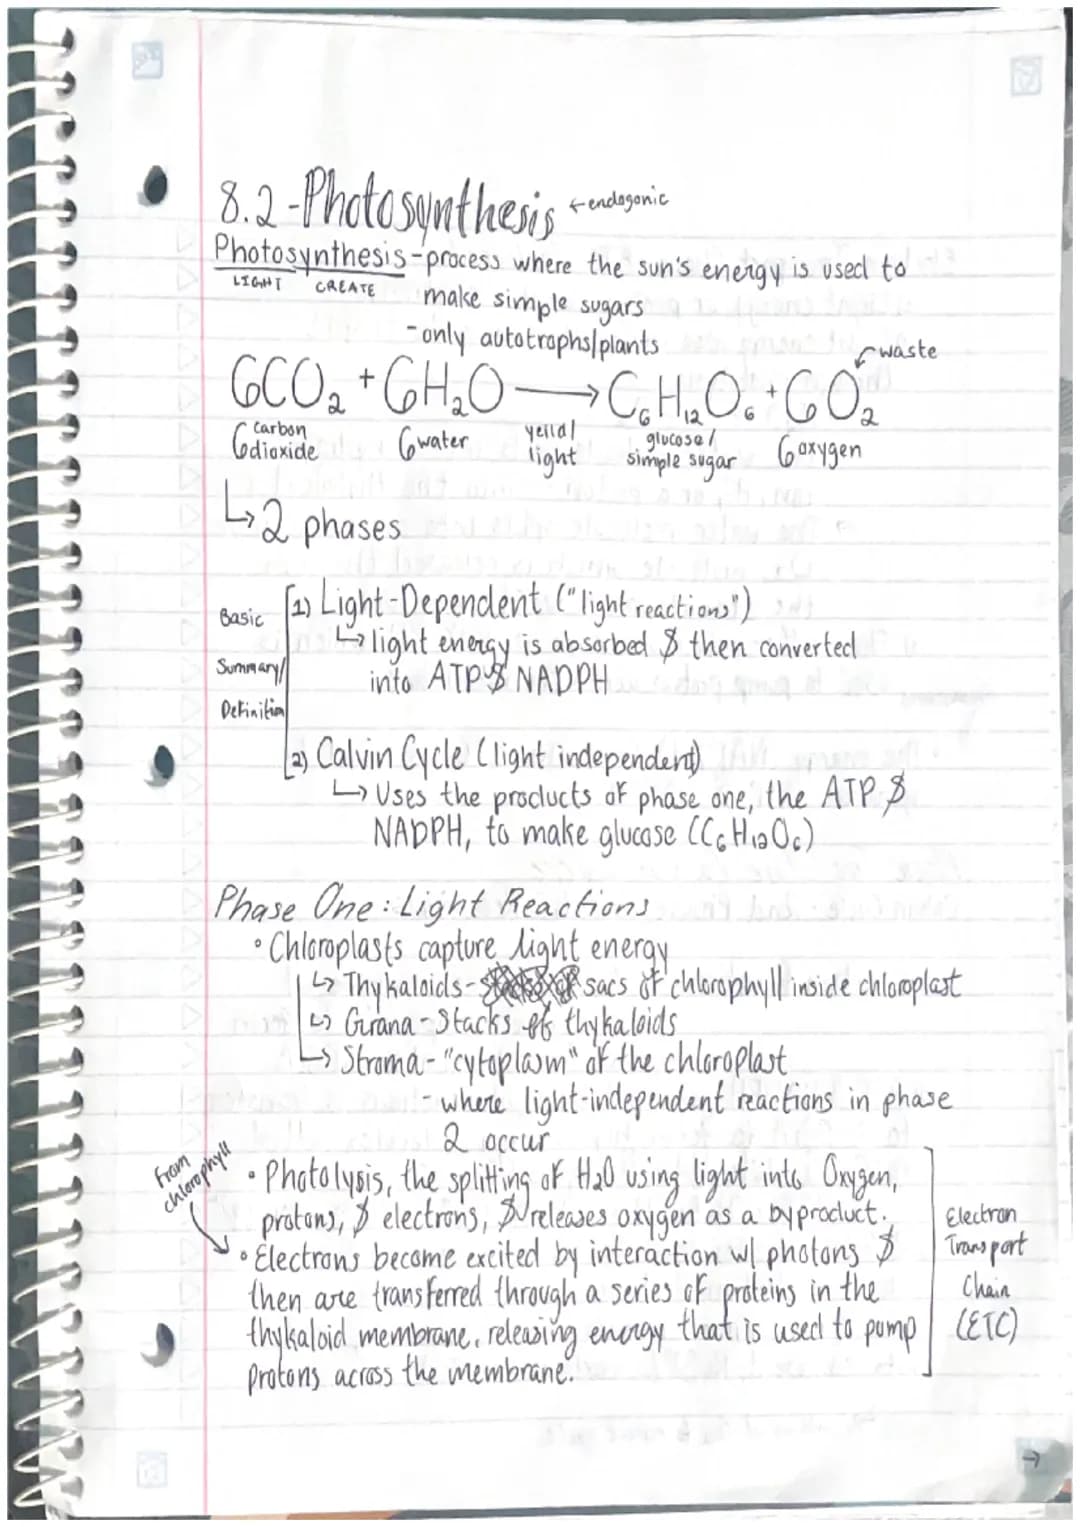 8.2 - Photosynthesis ← endogonic
Photosynthesis - process where the sun's energy is used to
LIGHT CREATE make simple sugars
- only autotrophs/plants
waste
6CO₂ + 6H₂O → C₆H₁₂O₆ + 6O₂
6 carbon dioxide 6 water light glucose/ simple sugar 6 oxygen
↳ 2 phases
Basic Summary/ Definition
1) Light-Dependent ("light reactions")
↳ light energy is absorbed & then converted
into ATP & NADPH
2) Calvin Cycle (light independent)
↳ Uses the products of phase one, the ATP &
NADPH, to make glucose (C₆H₁₂O₆)
Phase One: Light Reactions
• Chloroplasts capture light energy
↳ Thykaloids - sacs of chlorophyll inside chloroplast
↳ Grana - Stacks of thykaloids
↳ Stroma - "cytoplasm" of the chloroplast
- where light-independent reactions in phase
2 occur
from chlorophyll
• Photolysis, the splitting of H₂O using light into Oxygen,
protons, & electrons, & releases oxygen as a byproduct.
• Electrons become excited by interaction w/ photons &
then are transferred through a series of proteins in the
thykaloid membrane, releasing energy that is used to pump
protons across the membrane.
Electron
Transport
Chain
(ETC)
→